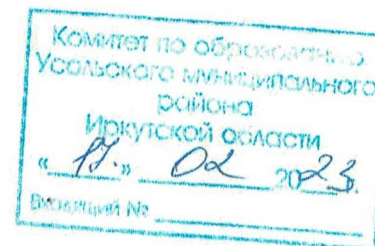 Комитет по образованию
Усольского муниципального
района
Иркутской области
« 17. » 02 2023г.
Входящий №